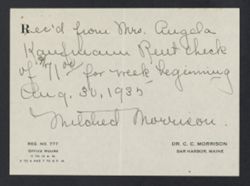 Rec'd from Mrs. Angela
Kaufmann Rent Check
of $71.00 for week beginning
Aug. 30, 1935
Mildred Morrison.
RES. NO. 777
OFFICE HOURS
DR. C. C. MORRISON
BAR HARBOR, MAINE